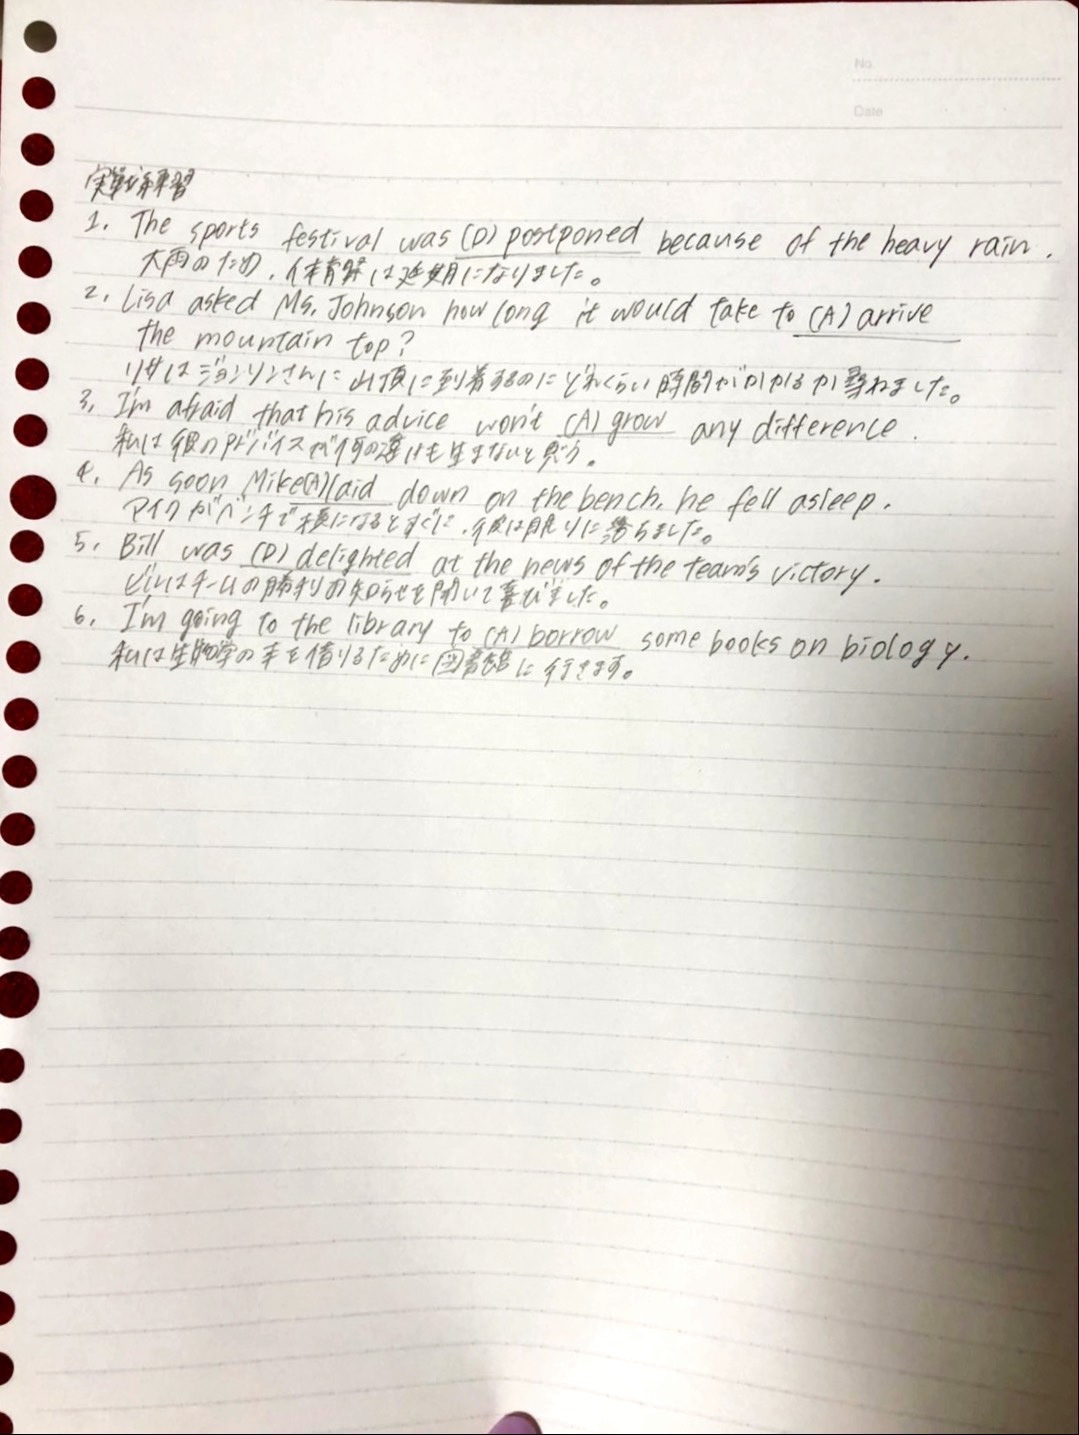 No.
Date
実戦練習
1. The sports festival was (D) postponed because of the heavy rain.
大雨のため、体育祭は延期になりました。
2. Lisa asked Ms. Johnson how long it would take to (A) arrive
the mountain top?
リサはジョンソンさんに山頂に到着するのにどれくらい時間がかかるか尋ねました。
3. I'm afraid that his advice won't (A) grow any difference.
私は彼のアドバイスが何の違いも生まないと思う。
4. As soon Mike(A)laid down on the bench, he fell asleep.
マイクがベンチで横になるとすぐに、彼は眠りに落ちました。
5. Bill was (D) delighted at the news of the team's victory.
ビルはチームの勝利のお知らせを聞いて喜びました。
6. I'm going to the library to (A) borrow some books on biology.
私は生物学の本を借りるために図書館に行きます。